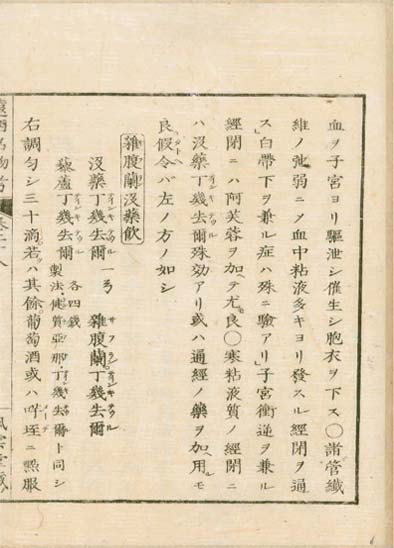 血ヲ子宮ヨリ驅泄シ催生シ胞衣ヲ下ス〇諸管纎
維ノ弛弱ニメ血中粘液多キヨリ發スル經閉ヲ通
ス」白帶下ヲ兼ル症ハ殊ニ驗アリ」子宮衝逆ヲ兼ル
經閉ニハ阿芙蓉ヲ加テ尤良〇寒粘液質ノ經閉ニ
ハ沒藥丁幾去爾殊効アリ或ハ通經ノ藥ヲ加用モ
良假令バ左ノ方ノ如シ
雜腹蘭沒藥飲
沒藥丁幾去爾 一弓 雜腹蘭丁幾去爾
藜蘆丁幾去爾 各四錢 製法健質亞那丁幾去爾ト同シ
右調勻シ三十滴若ハ其餘葡萄酒或ハ咩垤ニ㸃服